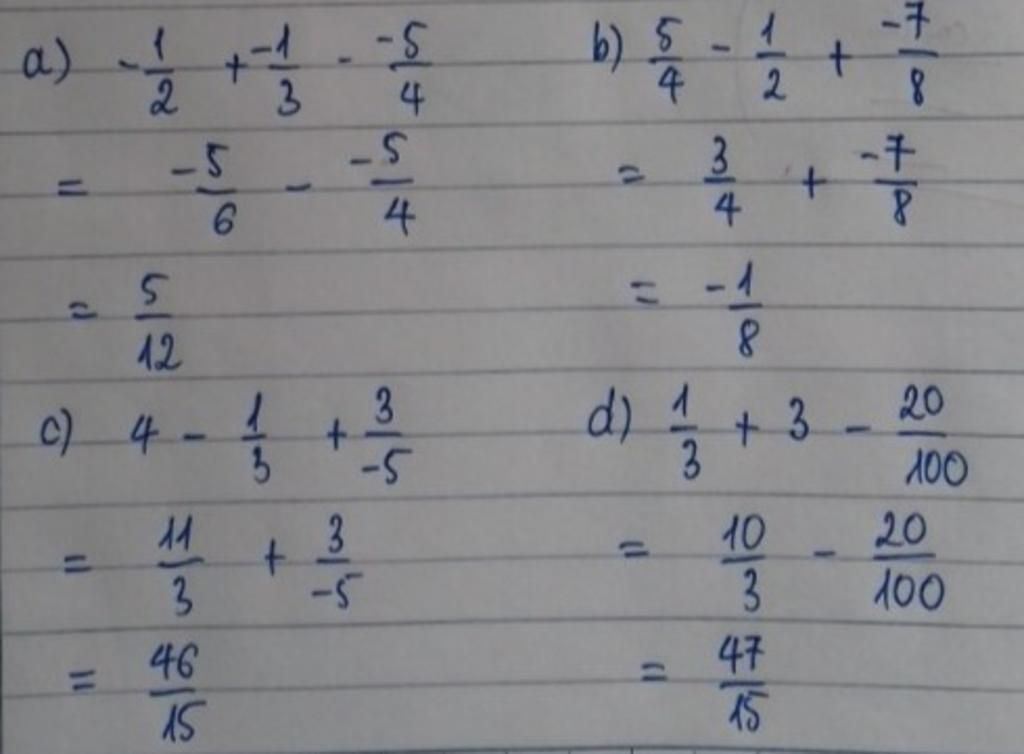 a) -1/2 + -1/3 - -5/4
= -5/6 - -5/4
= 5/12
b) 5/4 - 1/2 + -7/8
= 3/4 + -7/8
= -1/8
c) 4 - 1/3 + 3/-5
= 11/3 + 3/-5
= 46/15
d) 1/3 + 3 - 20/100
= 10/3 - 20/100
= 47/15